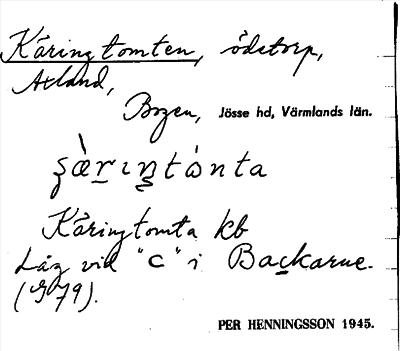 Käringtomten, ödetorp,
Axland,
Bogen, Jösse hd, Värmlands län.
ʂæ̀r̠ɩn̠tὼnta
Käringtomta kb
Låg vid "C" i Backarne.
(G79).
PER HENNINGSSON 1945.